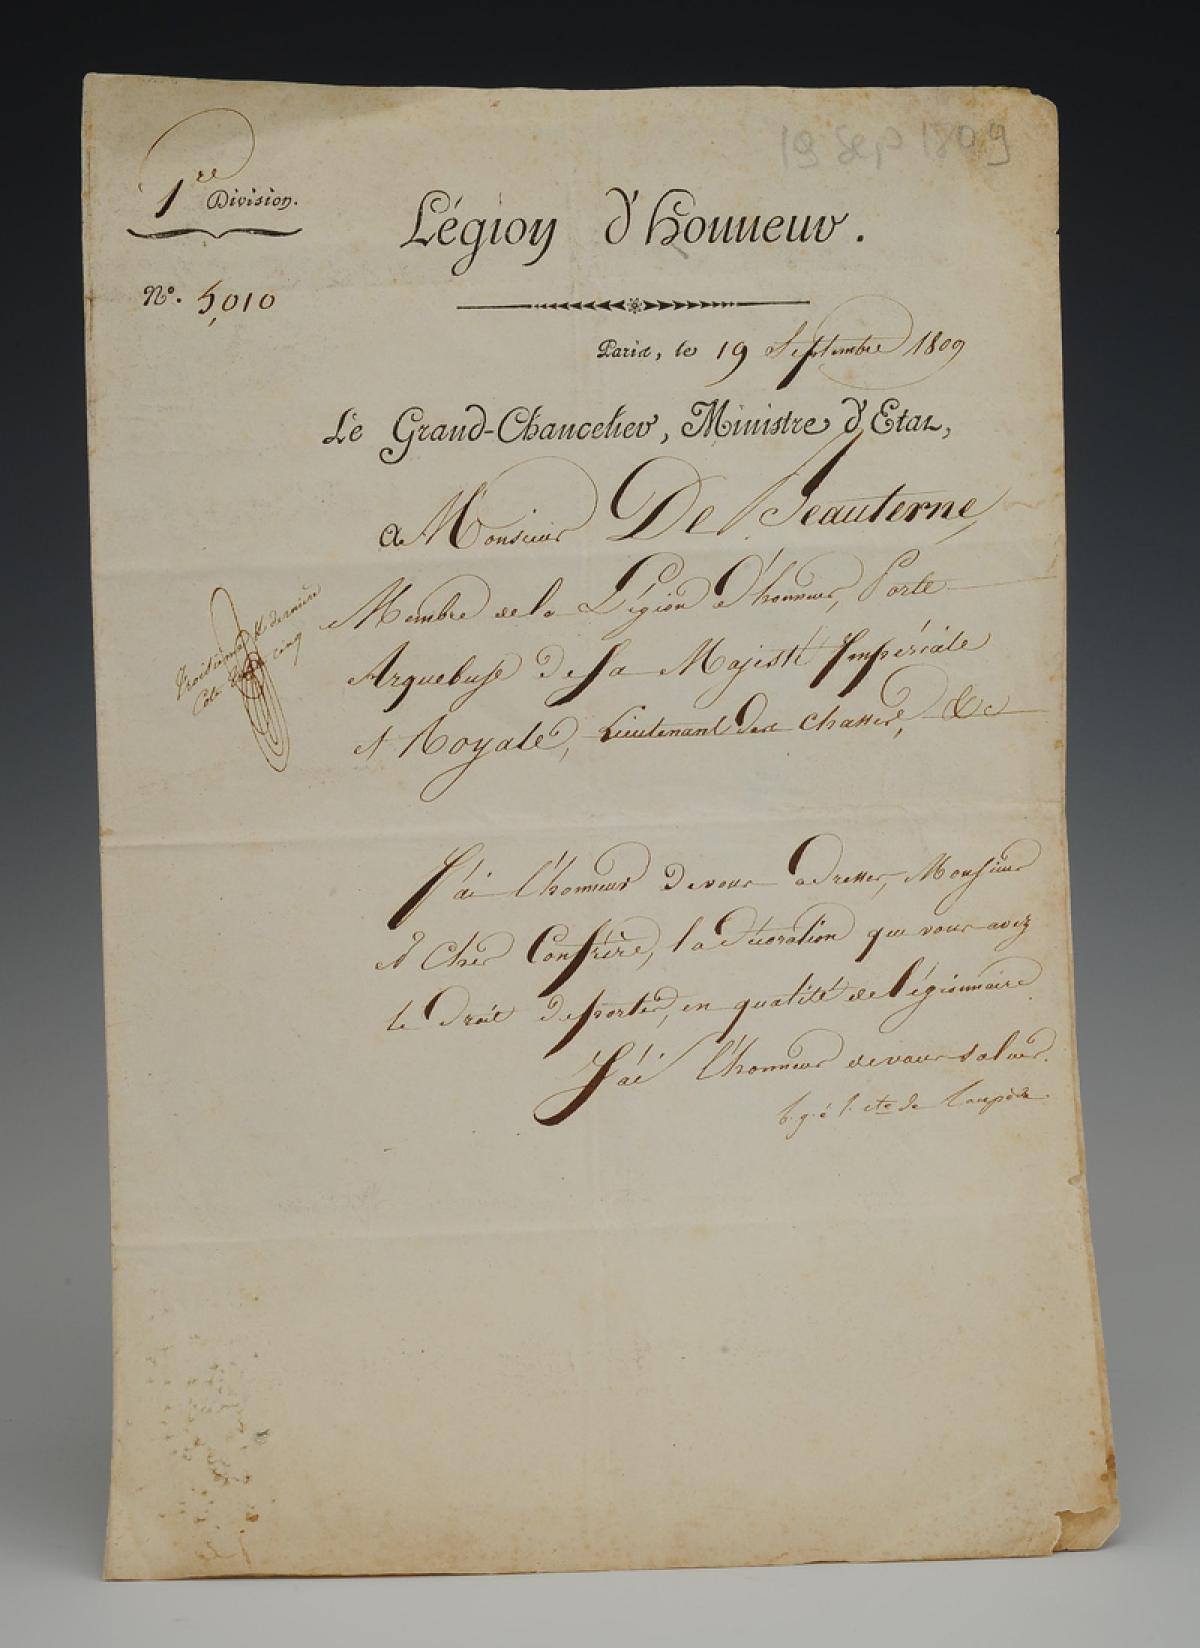 19 Sep 1809
1re Division.
Légion d'honneur.
No. 5,010
Paris, le 19 Septembre 1809
Le Grand-Chancelier, Ministre d'Etat,
a Monsieur De Beauterne,
Membre de la Légion d'honneur, Porte
Arquebuse de Sa Majesté Impériale
et Royale, Lieutenant des chasses, &c
Troisième et dernière
cinq
J'ai l'honneur de vous adresser, Monsieur
et cher Confrère, la décoration que vous avez
le droit de porter, en qualité de légionnaire
J'ai l'honneur de vous saluer.
b. g. é. l. cte de Lacepède